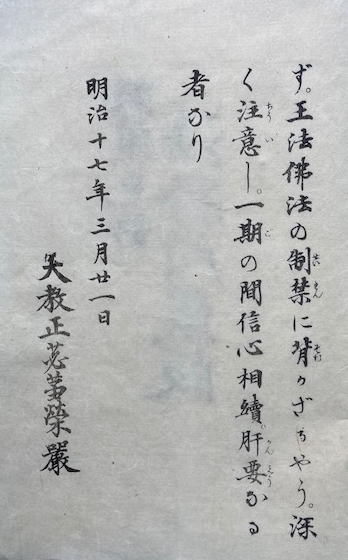 ず。王法佛法の制禁に背かざるやう。深
く注意し。一期の間信心相續肝要なる
者なり
明治十七年三月廿一日
大教正苾蒭榮嚴